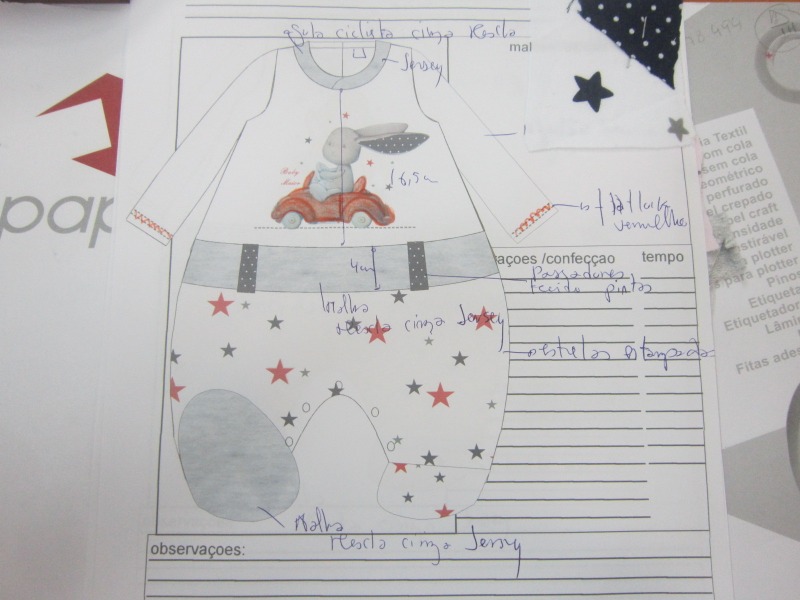 gola ciclista cinza Mescla
mal
Jersey
16,5cm
Baby
vermelho
4cm
açoes /confecçao
tempo
Passadores
tecido pintas
Malha
Mescla cinza Jersey
estrelas estampadas
Malha
Mescla cinza Jersey
observaçoes:
pap
la Textil
om cola
sem cola
ométrico
perfurado
el crepado
pel craft
ensidade
stirável
plotter
s para plotter
Pinos
Etiqueta
Etiquetador
Lâmi
Fitas ades
494